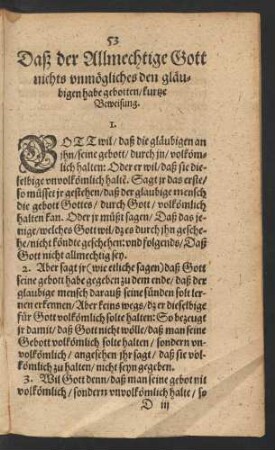 53
Daß der Allmechtige Gott
nichts vnmögliches den gläu-
bigen habe gebotten / kurtze
Beweisung.
1.
GOTT wil / daß die gläubigen an
jhn / seine gebott / durch jn / volköm-
lich halten: Oder er wil / daß sie die-
selbige vnvolkömlich haltē. Sagt jr das erste /
so müsset jr gestehen / daß der glaubige mensch
die gebott Gottes / durch Gott / volkömlich
halten kan. Oder jr müßt sagen / Daß das je-
nige / welches Gott wil / dz es durch jhn gesche-
he / nicht köndte geschehen: vnd folgends / Daß
Gott nicht allmechtig sey.
2. Aber sagt jr (wie etliche sagen) daß Gott
seine gebott habe gegeben zu dem ende / daß der
glaubige mensch darauß seine sünden solt ler-
nen erkennen / Aber keins wegs / dz er dieselbige
für Gott volkömlich solte halten: So bezeugt
jr damit / daß Gott nicht wölle / daß man seine
Gebott volkömlich solte halten / sondern vn-
volkömlich / angesehen jhr sagt / daß sie vol-
kömlich zu halten / nicht seyn gegeben.
3. Wil Gott denn / daß man seine gebot nit
volkömlich / sondern vnvolkömlich halte / so
D iij